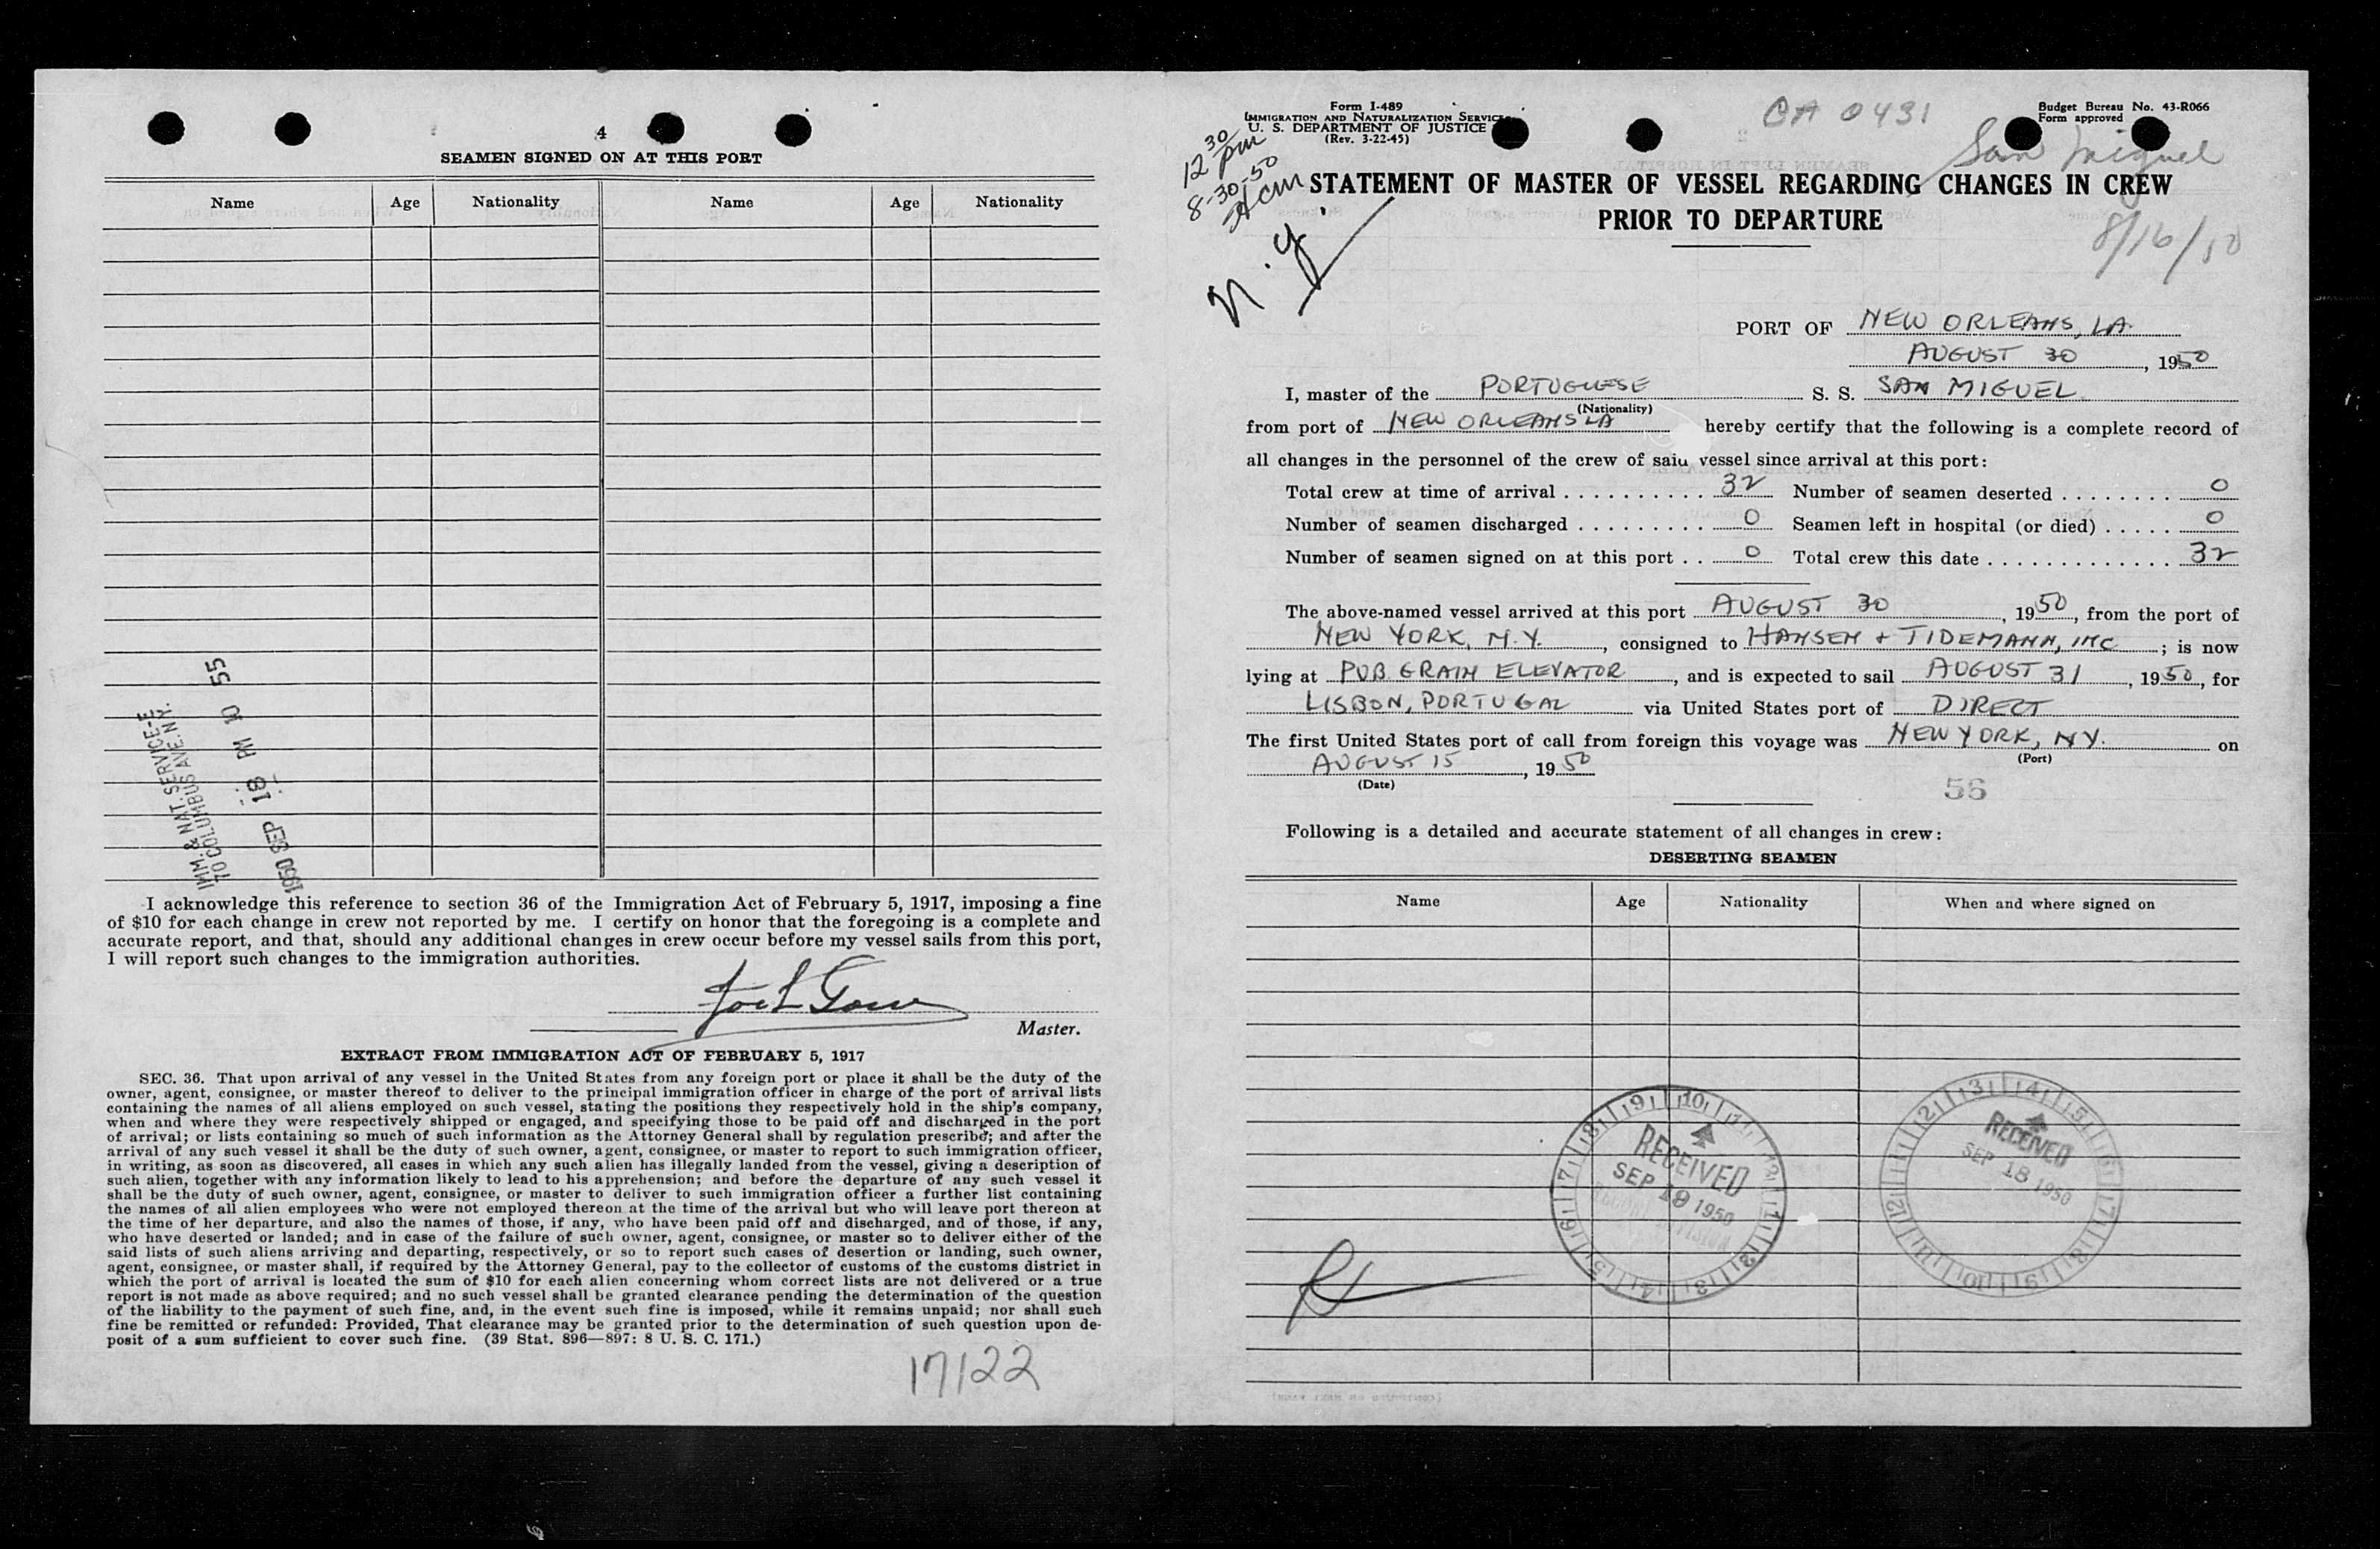 4
SEAMEN SIGNED ON AT THIS PORT
Name Age Nationality Name Age Nationality
IMM. & NAT. SERVICE-E
70 COLUMBUS AVE. N.Y.
1950 SEP 18 PM 10 55
I acknowledge this reference to section 36 of the Immigration Act of February 5, 1917, imposing a fine
of $10 for each change in crew not reported by me. I certify on honor that the foregoing is a complete and
accurate report, and that, should any additional changes in crew occur before my vessel sails from this port,
I will report such changes to the immigration authorities.
Master.
EXTRACT FROM IMMIGRATION ACT OF FEBRUARY 5, 1917
SEC. 36. That upon arrival of any vessel in the United States from any foreign port or place it shall be the duty of the
owner, agent, consignee, or master thereof to deliver to the principal immigration officer in charge of the port of arrival lists
containing the names of all aliens employed on such vessel, stating the positions they respectively hold in the ship's company,
when and where they were respectively shipped or engaged, and specifying those to be paid off and discharged in the port
of arrival; or lists containing so much of such information as the Attorney General shall by regulation prescribe; and after the
arrival of any such vessel it shall be the duty of such owner, agent, consignee, or master to report to such immigration officer,
in writing, as soon as discovered, all cases in which any such alien has illegally landed from the vessel, giving a description of
such alien, together with any information likely to lead to his apprehension; and before the departure of any such vessel it
shall be the duty of such owner, agent, consignee, or master to deliver to such immigration officer a further list containing
the names of all alien employees who were not employed thereon at the time of the arrival but who will leave port thereon at
the time of her departure, and also the names of those, if any, who have been paid off and discharged, and of those, if any,
who have deserted or landed; and in case of the failure of such owner, agent, consignee, or master so to deliver either of the
said lists of such aliens arriving and departing, respectively, or so to report such cases of desertion or landing, such owner,
agent, consignee, or master shall, if required by the Attorney General, pay to the collector of customs of the customs district in
which the port of arrival is located the sum of $10 for each alien concerning whom correct lists are not delivered or a true
report is not made as above required; and no such vessel shall be granted clearance pending the determination of the question
of the liability to the payment of such fine, and, in the event such fine is imposed, while it remains unpaid; nor shall such
fine be remitted or refunded: Provided, That clearance may be granted prior to the determination of such question upon de-
posit of a sum sufficient to cover such fine. (39 Stat. 896—897: 8 U. S. C. 171.)
17122
Form I-489
IMMIGRATION AND NATURALIZATION SERVICE
U. S. DEPARTMENT OF JUSTICE
(Rev. 3-22-45)
CA 0431
Budget Bureau No. 43-R066
Form approved
San Miguel
12 30 pm
8-30-50
N.Y.
STATEMENT OF MASTER OF VESSEL REGARDING CHANGES IN CREW
PRIOR TO DEPARTURE
8/16/50
PORT OF NEW ORLEANS, LA.
AUGUST 30, 1950
I, master of the PORTUGUESE S. S. SAN MIGUEL
(Nationality)
from port of NEW ORLEANS LA hereby certify that the following is a complete record of
all changes in the personnel of the crew of said vessel since arrival at this port:
Total crew at time of arrival .......... 32 Number of seamen deserted ........ 0
Number of seamen discharged ......... 0 Seamen left in hospital (or died) ..... 0
Number of seamen signed on at this port .. 0 Total crew this date ............. 32
The above-named vessel arrived at this port AUGUST 30, 1950, from the port of
NEW YORK, N.Y., consigned to HANSEN + TIDEMANN, INC; is now
lying at PUB. GRAIN ELEVATOR, and is expected to sail AUGUST 31, 1950, for
LISBON, PORTUGAL via United States port of DIRECT
The first United States port of call from foreign this voyage was NEW YORK, NY. on
(Port)
AUGUST 15, 1950
(Date)
56
Following is a detailed and accurate statement of all changes in crew:
DESERTING SEAMEN
Name Age Nationality When and where signed on
RECEIVED
SEP 19 1950
RECEIVED
SEP 18 1950